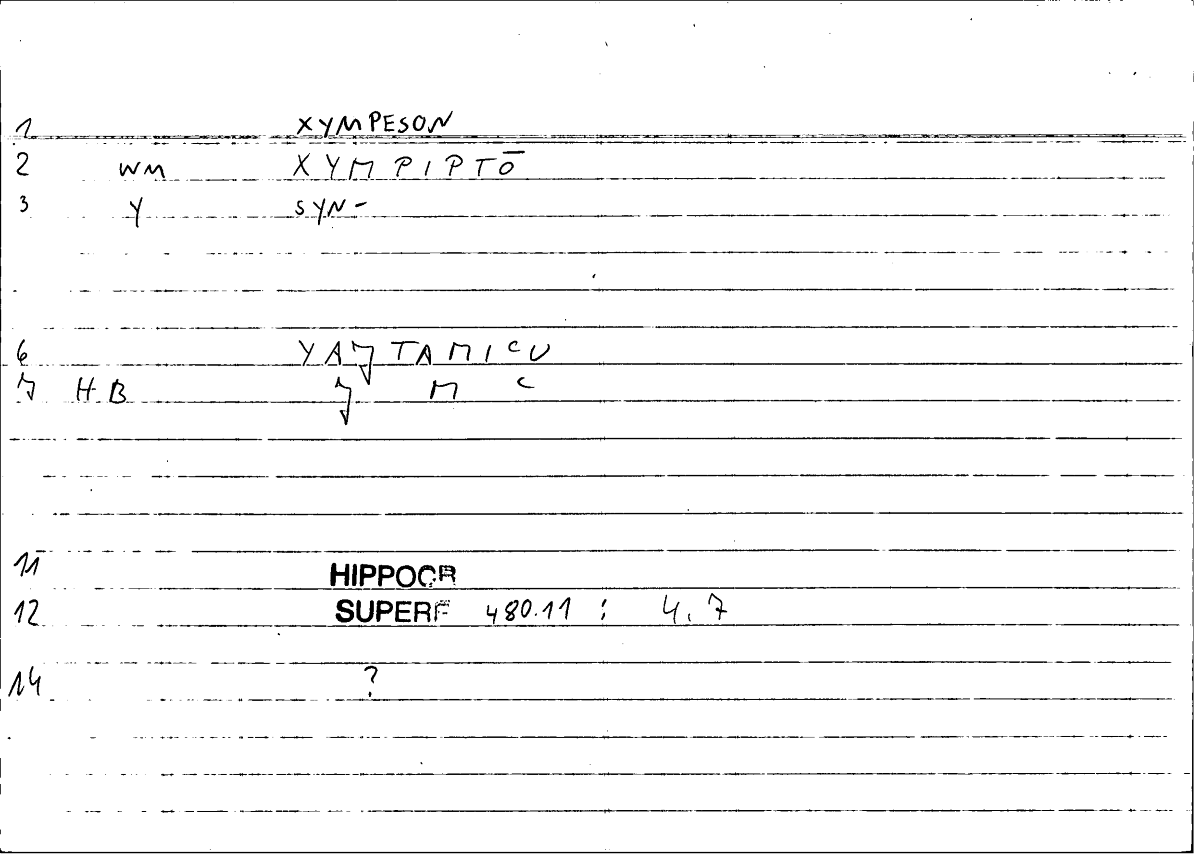 1 XYMPESON
2 WM XYMPIPTŌ
3 Y SYN-
6
7 HB
11 HIPPOCR
12 SUPERF 480.11 : 4.7
14 ?